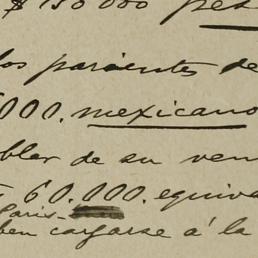 $ 150 000 pes
los parientes de
000. mexicano
blar de su ven
60.000. equiva
Paris-
ben cargarse á la